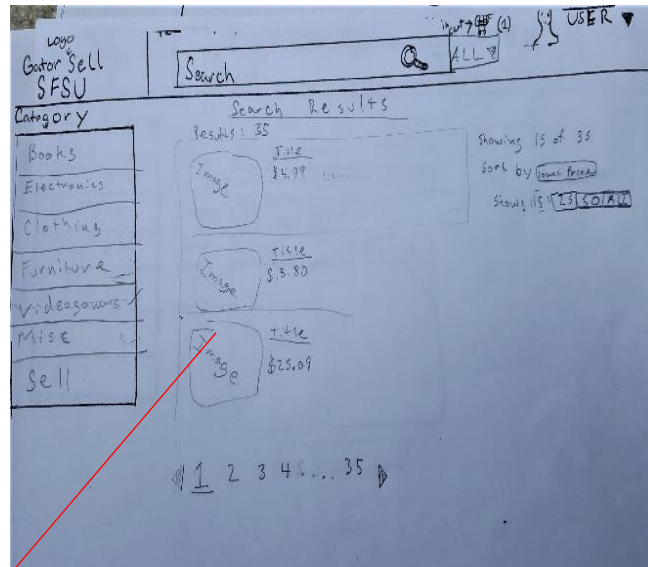 Logo
Gator Sell
SFSU
Search
ALL
in cart → (1)
USER
Category
Books
Electronics
Clothing
Furniture
Videogames
Misc
Sell
Search Results
Results: 35
Image
Title
$4.99
Image
Title
$3.80
Image
Title
$25.09
Showing 15 of 35
Sort by
Show: 15 25 50 ALL
1 2 3 4 5 ... 35